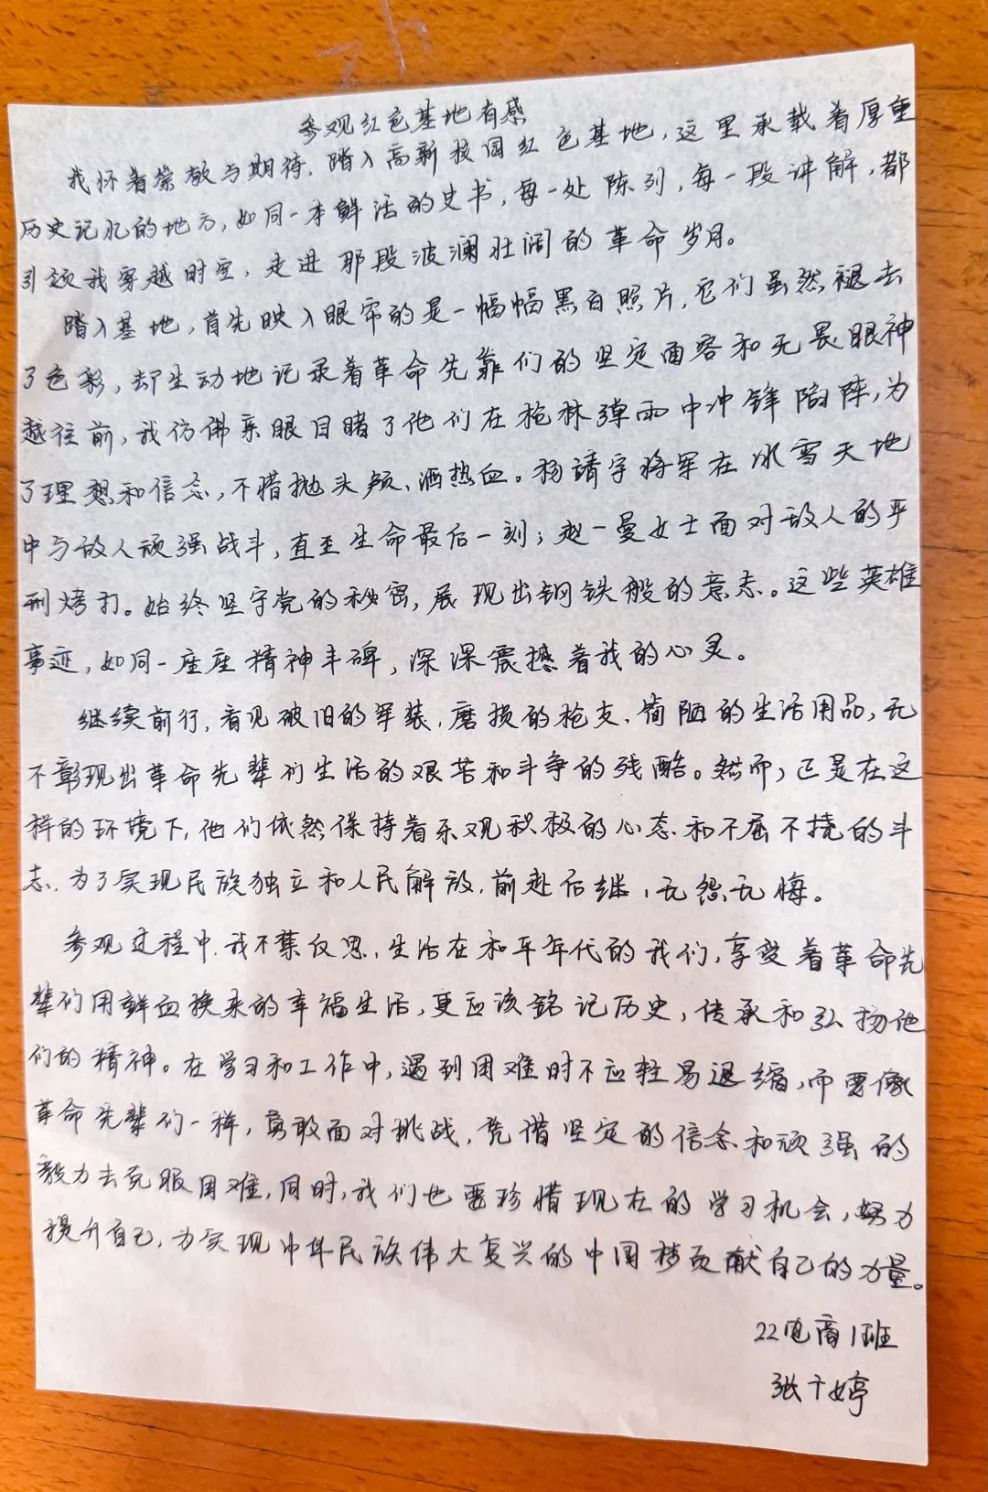 参观红色基地有感
我怀着崇敬与期待，踏入高新校园红色基地，这里承载着厚重
历史记忆的地方，如同一本鲜活的史书，每一处陈列，每一段讲解，都
引领我穿越时空，走进那段波澜壮阔的革命岁月。
踏入基地，首先映入眼帘的是一幅幅黑白照片，它们虽然褪去
了色彩，却生动地记录着革命先辈们的坚定面容和无畏眼神
越往前，我仿佛亲眼目睹了他们在枪林弹雨中冲锋陷阵，为
了理想和信念，不惜抛头颅、洒热血。杨靖宇将军在冰雪天地
中与敌人顽强战斗，直至生命最后一刻；赵一曼女士面对敌人的严
刑烤打。始终坚守党的秘密，展现出钢铁般的意志。这些英雄
事迹，如同一座座精神丰碑，深深震撼着我的心灵。
继续前行，看见破旧的军装、磨损的枪支、简陋的生活用品，无
不彰现出革命先辈们生活的艰苦和斗争的残酷。然而，正是在这
样的环境下，他们依然保持着乐观积极的心态和不屈不挠的斗
志，为了实现民族独立和人民解放，前赴后继，无怨无悔。
参观过程中，我不禁反思，生活在和平年代的我们，享受着革命先
辈们用鲜血换来的幸福生活，更应该铭记历史，传承和弘扬他
们的精神。在学习和工作中，遇到困难时不应轻易退缩，而要像
革命先辈们一样，勇敢面对挑战，凭借坚定的信念和顽强的
毅力去克服困难，同时，我们也要珍惜现在的学习机会，努力
提升自己，为实现中华民族伟大复兴的中国梦贡献自己的力量。
22电商1班
张千婷